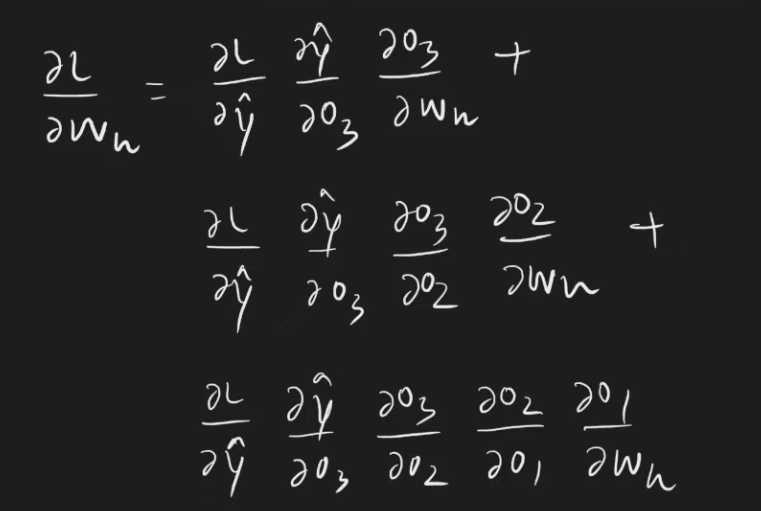 ∂L/∂W_h = ∂L/∂ŷ ∂ŷ/∂O_3 ∂O_3/∂W_h +
∂L/∂ŷ ∂ŷ/∂O_3 ∂O_3/∂O_2 ∂O_2/∂W_h +
∂L/∂ŷ ∂ŷ/∂O_3 ∂O_3/∂O_2 ∂O_2/∂O_1 ∂O_1/∂W_h